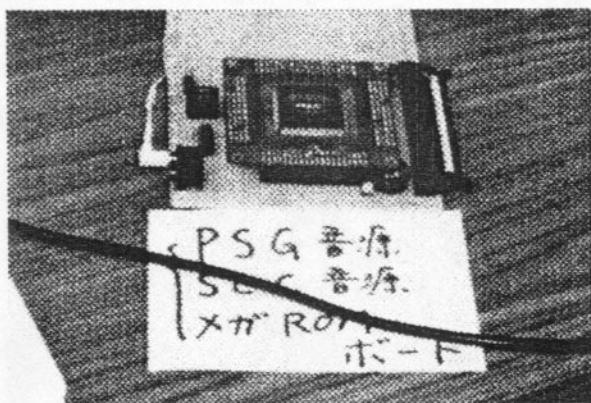 PSG音源
SCC音源
メガROM
ボート